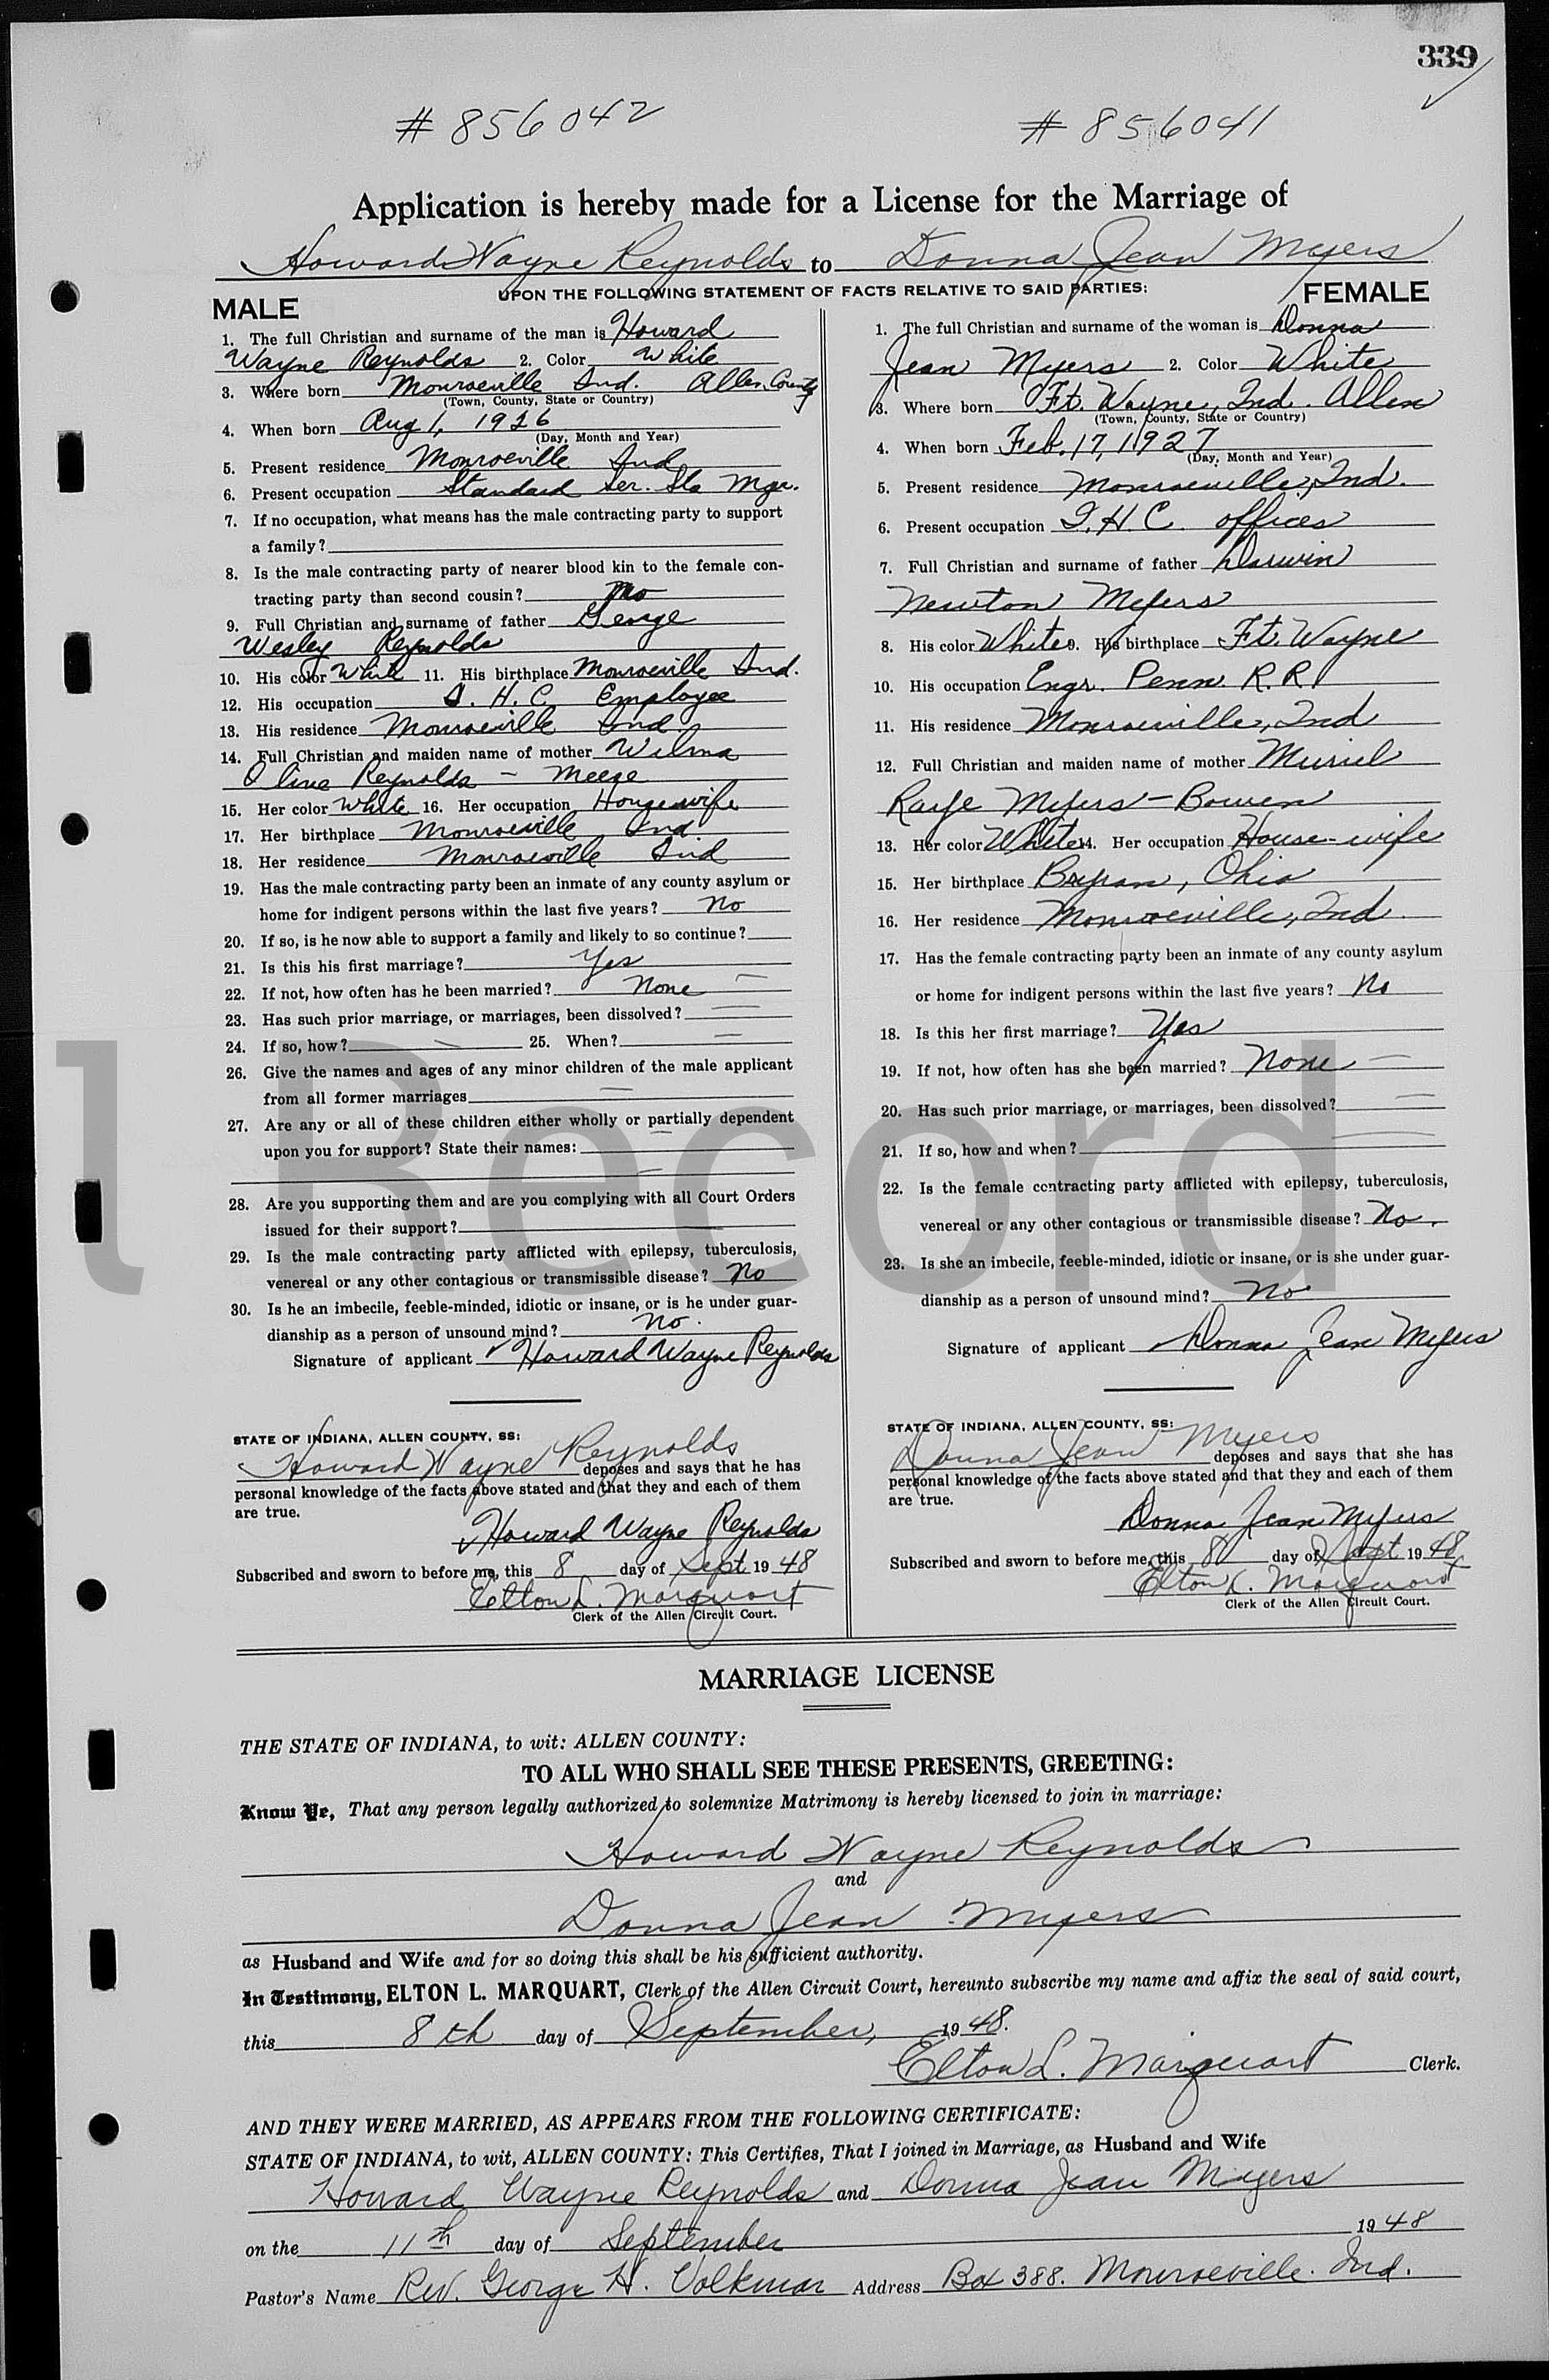 339
# 856042
# 856041
Application is hereby made for a License for the Marriage of
Howard Wayne Reynolds to Donna Jean Myers
UPON THE FOLLOWING STATEMENT OF FACTS RELATIVE TO SAID PARTIES:
MALE
1. The full Christian and surname of the man is Howard
Wayne Reynolds 2. Color White
3. Where born Monroeville Ind. Allen County
(Town, County, State or Country)
4. When born Aug 1, 1926
(Day, Month and Year)
5. Present residence Monroeville Ind
6. Present occupation Standard Ser. Sta Mgr.
7. If no occupation, what means has the male contracting party to support
a family?
8. Is the male contracting party of nearer blood kin to the female con-
tracting party than second cousin? No
9. Full Christian and surname of father George
Wesley Reynolds
10. His color White 11. His birthplace Monroeville Ind.
12. His occupation I. H. C. Employee
13. His residence Monroeville Ind
14. Full Christian and maiden name of mother Wilma
Oline Reynolds –
15. Her color White 16. Her occupation Housewife
17. Her birthplace Monroeville Ind.
18. Her residence Monroeville Ind
19. Has the male contracting party been an inmate of any county asylum or
home for indigent persons within the last five years? No
20. If so, is he now able to support a family and likely to so continue?
21. Is this his first marriage? Yes
22. If not, how often has he been married? None —
23. Has such prior marriage, or marriages, been dissolved? —
24. If so, how? — 25. When? —
26. Give the names and ages of any minor children of the male applicant
from all former marriages —
27. Are any or all of these children either wholly or partially dependent
upon you for support? State their names: —
—
28. Are you supporting them and are you complying with all Court Orders
issued for their support?
29. Is the male contracting party afflicted with epilepsy, tuberculosis,
venereal or any other contagious or transmissible disease? No
30. Is he an imbecile, feeble-minded, idiotic or insane, or is he under guar-
dianship as a person of unsound mind? No.
Signature of applicant Howard Wayne Reynolds
STATE OF INDIANA, ALLEN COUNTY, SS:
Howard Wayne Reynolds deposes and says that he has
personal knowledge of the facts above stated and that they and each of them
are true.
Howard Wayne Reynolds
Subscribed and sworn to before me, this 8 day of Sept 1948
Elton L. Marquart
Clerk of the Allen Circuit Court.
FEMALE
1. The full Christian and surname of the woman is Donna
Jean Myers 2. Color White
3. Where born Ft. Wayne, Ind. Allen
(Town, County, State or Country)
4. When born Feb. 17, 1927
(Day, Month and Year)
5. Present residence Monroeville, Ind.
6. Present occupation I. H. C. offices
7. Full Christian and surname of father Darwin
Newton Myers
8. His color White 9. His birthplace Ft. Wayne
10. His occupation Engr. Penn. R. R.
11. His residence Monroeville, Ind
12. Full Christian and maiden name of mother Muriel
Raye Myers – Bowen
13. Her color White 14. Her occupation House-wife
15. Her birthplace Bryan, Ohio
16. Her residence Monroeville, Ind.
17. Has the female contracting party been an inmate of any county asylum
or home for indigent persons within the last five years? No
18. Is this her first marriage? Yes
19. If not, how often has she been married? None —
20. Has such prior marriage, or marriages, been dissolved? —
21. If so, how and when? —
22. Is the female contracting party afflicted with epilepsy, tuberculosis,
venereal or any other contagious or transmissible disease? No.
23. Is she an imbecile, feeble-minded, idiotic or insane, or is she under guar-
dianship as a person of unsound mind? No
Signature of applicant Donna Jean Myers
STATE OF INDIANA, ALLEN COUNTY, SS:
Donna Jean Myers deposes and says that she has
personal knowledge of the facts above stated and that they and each of them
are true.
Donna Jean Myers
Subscribed and sworn to before me, this 8 day of Sept 1948
Elton L. Marquart
Clerk of the Allen Circuit Court.
l Record
MARRIAGE LICENSE
THE STATE OF INDIANA, to wit: ALLEN COUNTY:
TO ALL WHO SHALL SEE THESE PRESENTS, GREETING:
Know Ye, That any person legally authorized to solemnize Matrimony is hereby licensed to join in marriage:
Howard Wayne Reynolds
and
Donna Jean Myers
as Husband and Wife and for so doing this shall be his sufficient authority.
In Testimony, ELTON L. MARQUART, Clerk of the Allen Circuit Court, hereunto subscribe my name and affix the seal of said court,
this 8th day of September, 1948.
Elton L. Marquart Clerk.
AND THEY WERE MARRIED, AS APPEARS FROM THE FOLLOWING CERTIFICATE:
STATE OF INDIANA, to wit, ALLEN COUNTY: This Certifies, That I joined in Marriage, as Husband and Wife
Howard Wayne Reynolds and Donna Jean Myers
on the 11th day of September 1948
Pastor's Name Rev. George H. Volkmar Address Box 388. Monroeville. Ind.